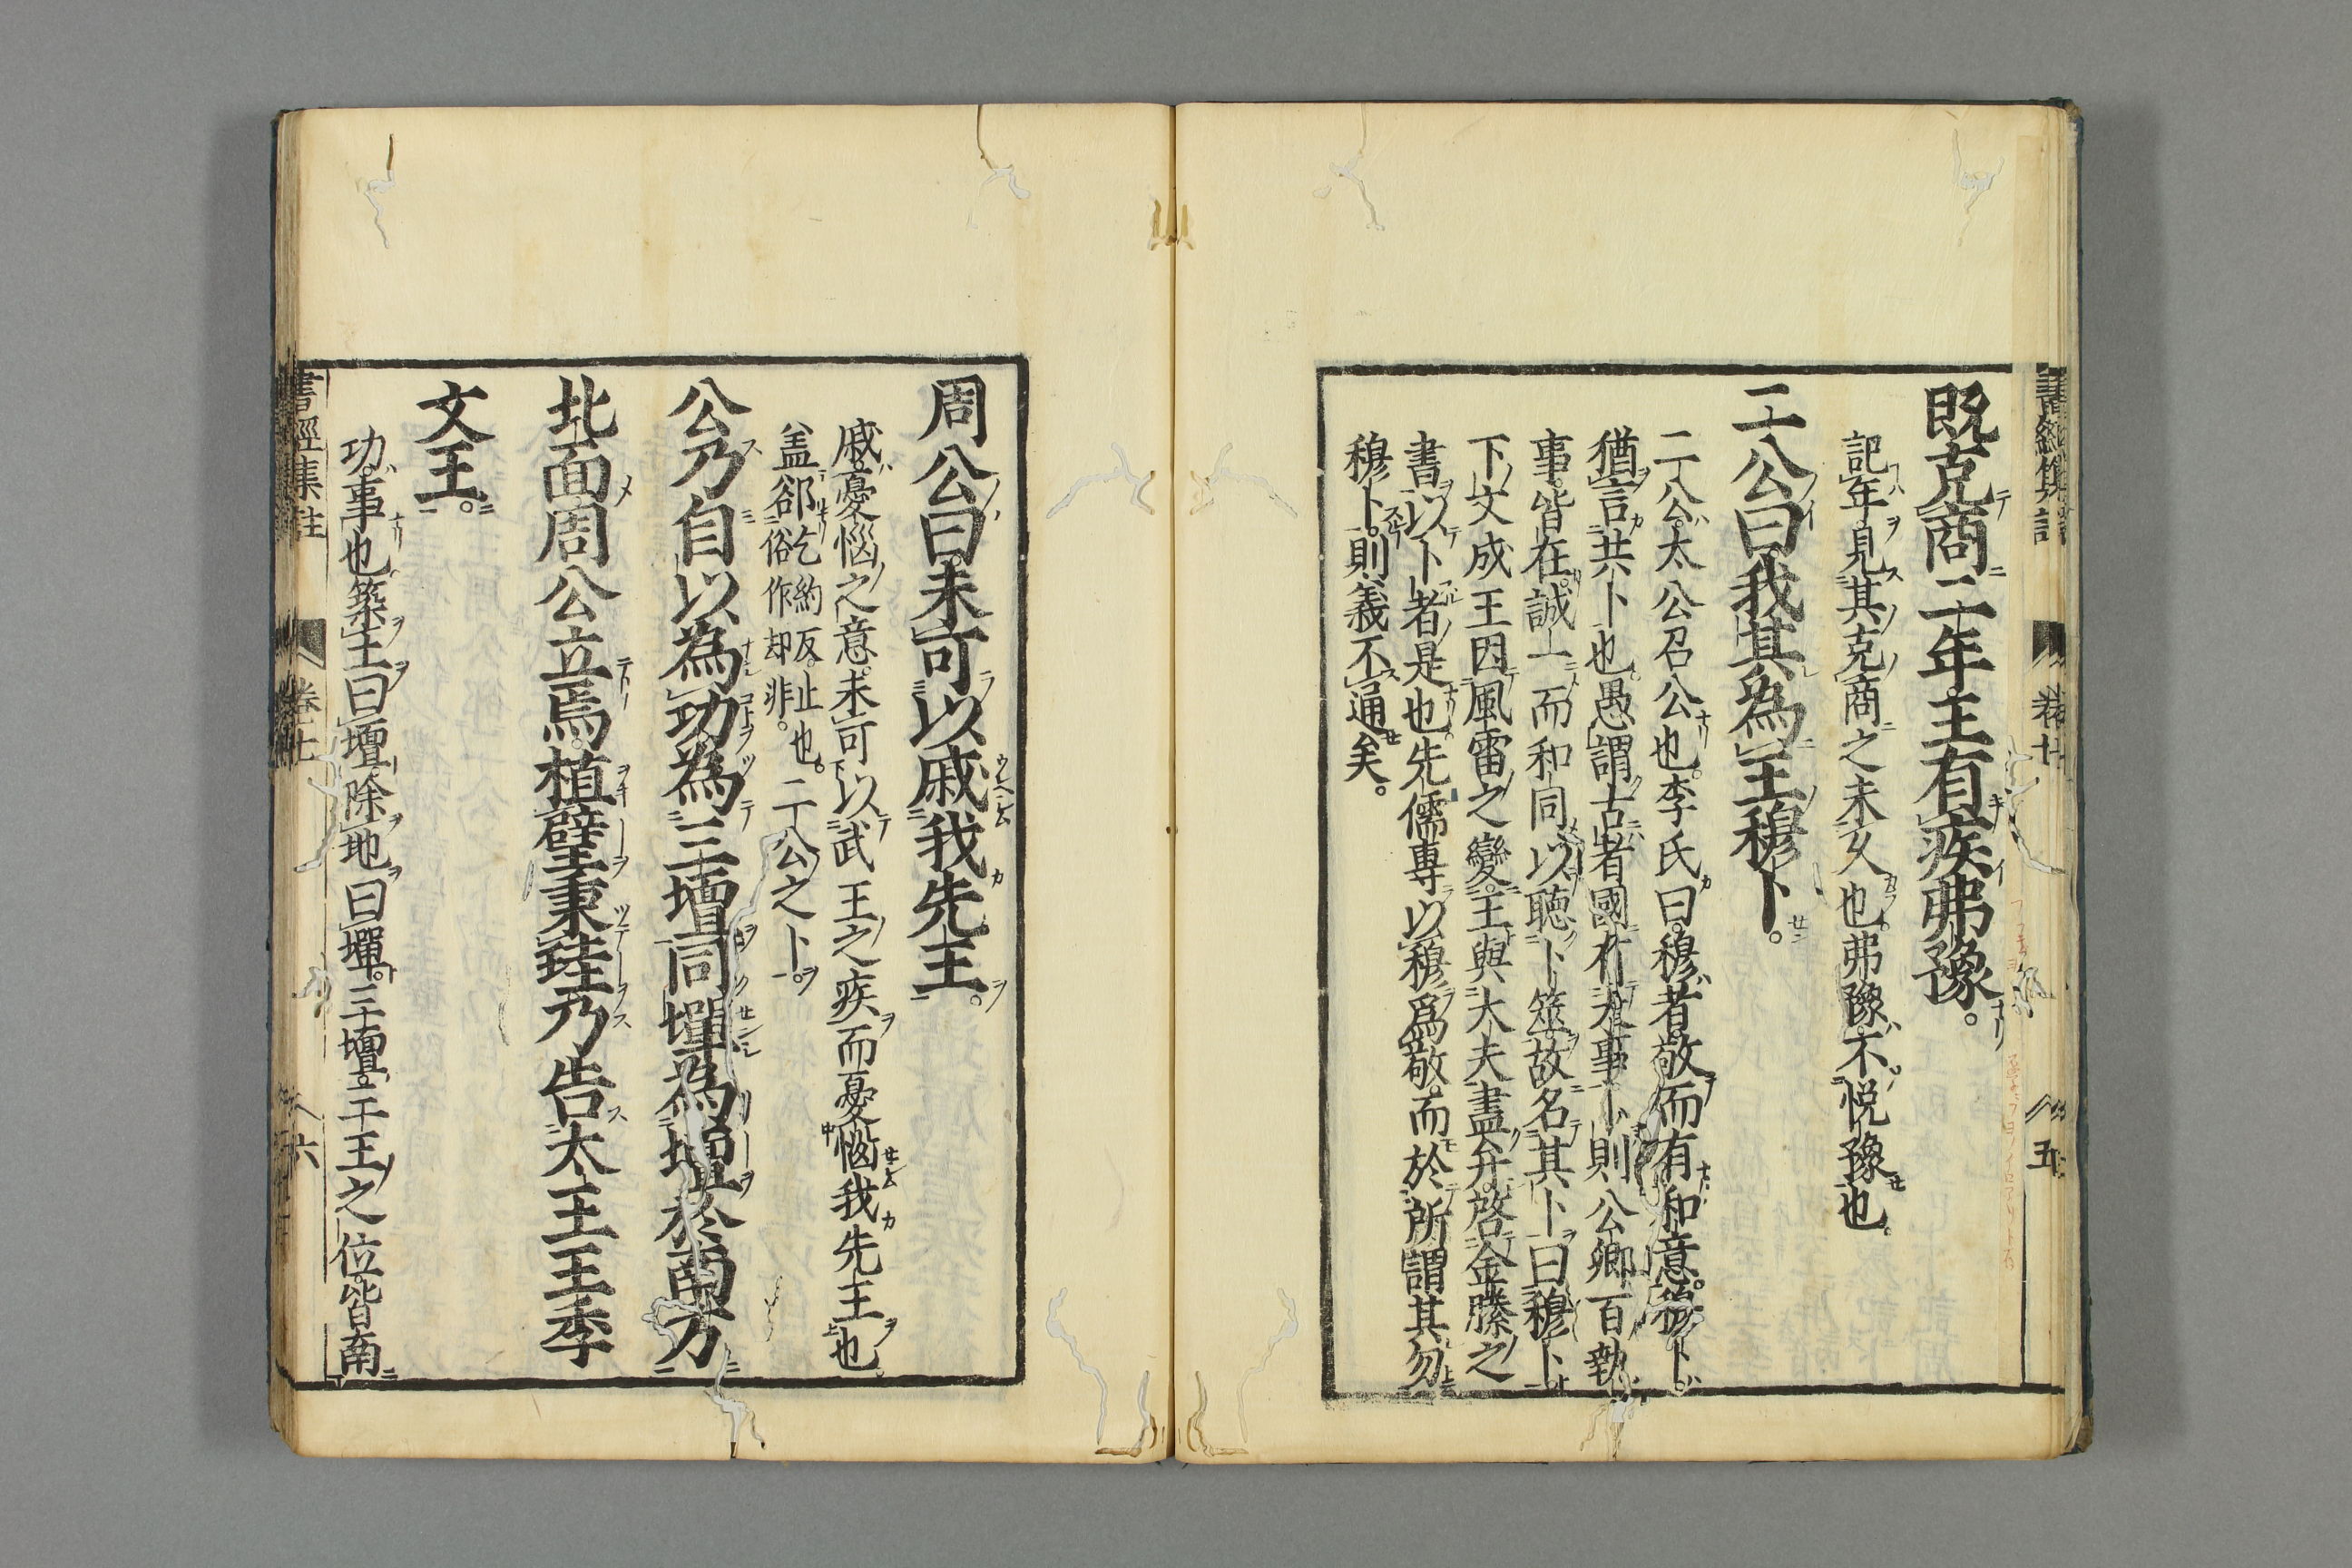 既克商二年王有疾弗豫。
記年見其克商之未久也弗豫不悦豫也。
二公曰我其為王穆卜。
二公太公召公也李氏曰穆者敬而有和意穆卜
猶言共卜也愚謂古者國有大事卜則公卿百執
事皆在誠一而和同以聴卜筮故名其卜曰穆卜
下文成王因風雷之變王與大夫盡弁啓金縢之
書以卜者是也先儒専以穆爲敬而於所謂其勿
穆卜則義不通矣。
周公曰未可以戚我先王。
戚憂惱之意未可以武王之疾而憂惱我先王也
盖郤乞約反止也俗作却非。二公之卜。
公乃自以為功為三壇同墠為壇於南方
北面周公立焉植璧秉珪乃告太王王季
文王。
功事也築土曰壇除地曰墠三壇三王之位皆南
書經集註
卷七
六
卷七
五